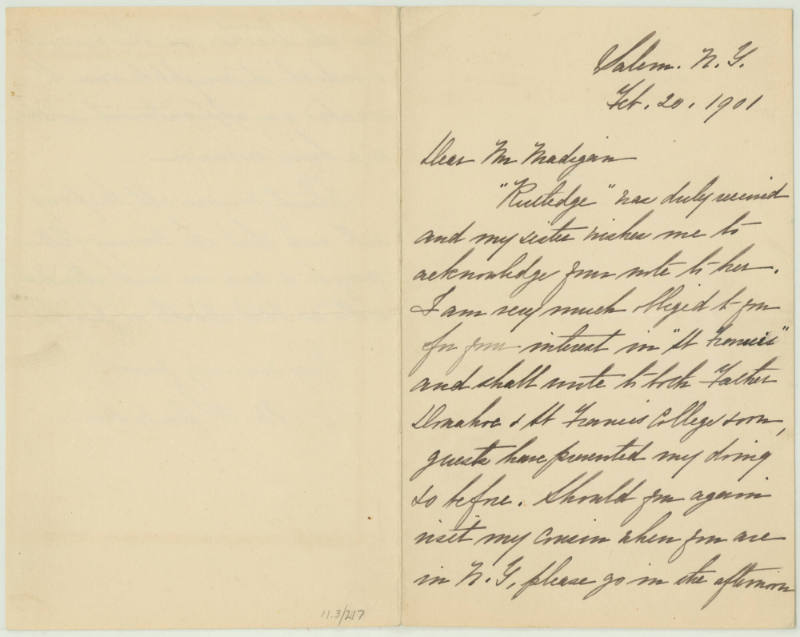 Salem. N. Y.
Feb. 20. 1901
Dear Mr Madigan
"Rutledge" was duly received
and my sister wishes me to
acknowledge your note to her.
I am very much obliged to you
for your interest in "St Francis"
and shall write to both Father
Donahoe & St Francis College soon,
guests have prevented my doing
so before. Should you again
visit my cousin when you are
in N. Y. please go in the afternoon
11.3/217